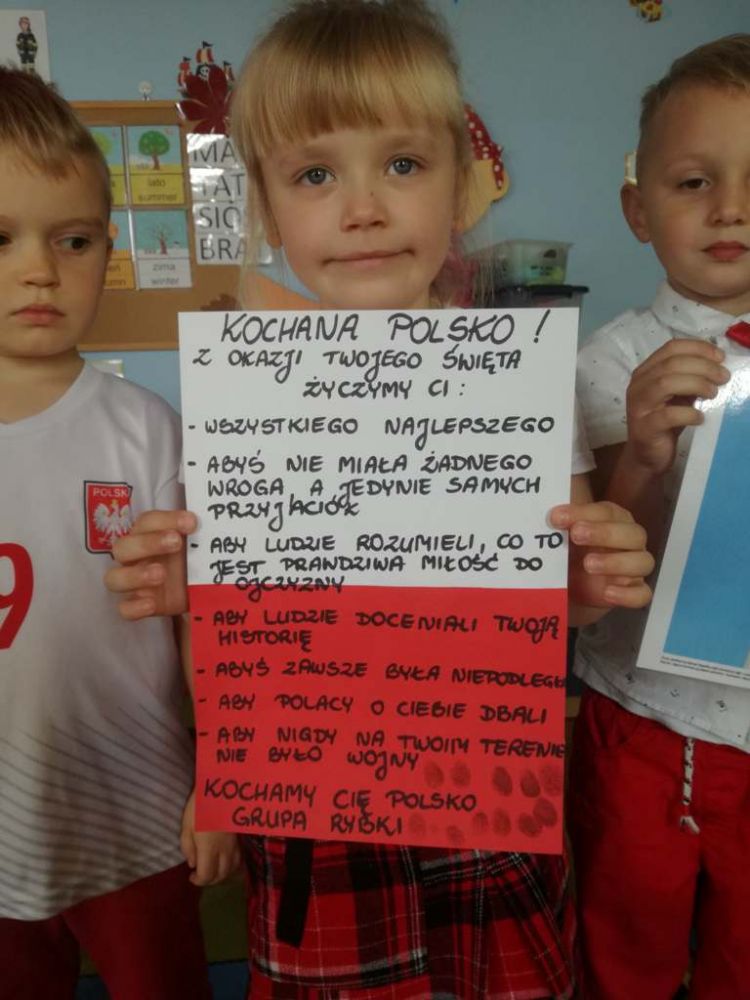 lato
summer
zima
winter
MA
TAT
SIO
BRA
POLSKA
9
KOCHANA POLSKO!
Z OKAZJI TWOJEGO ŚWIĘTA
ŻYCZYMY CI:
- WSZYSTKIEGO NAJLEPSZEGO
- ABYŚ NIE MIAŁA ŻADNEGO
WROGA, A JEDYNIE SAMYCH
PRZYJACIÓŁ
- ABY LUDZIE ROZUMIELI, CO TO
JEST PRAWDZIWA MIŁOŚĆ DO
OJCZYZNY
- ABY LUDZIE DOCENIALI TWOJĄ
HISTORIĘ
- ABYŚ ZAWSZE BYŁA NIEPODLEGŁA
- ABY POLACY O CIEBIE DBALI
- ABY NIGDY NA TWOIM TERENIE
NIE BYŁO WOJNY
KOCHAMY CIĘ POLSKO
GRUPA RYBKI